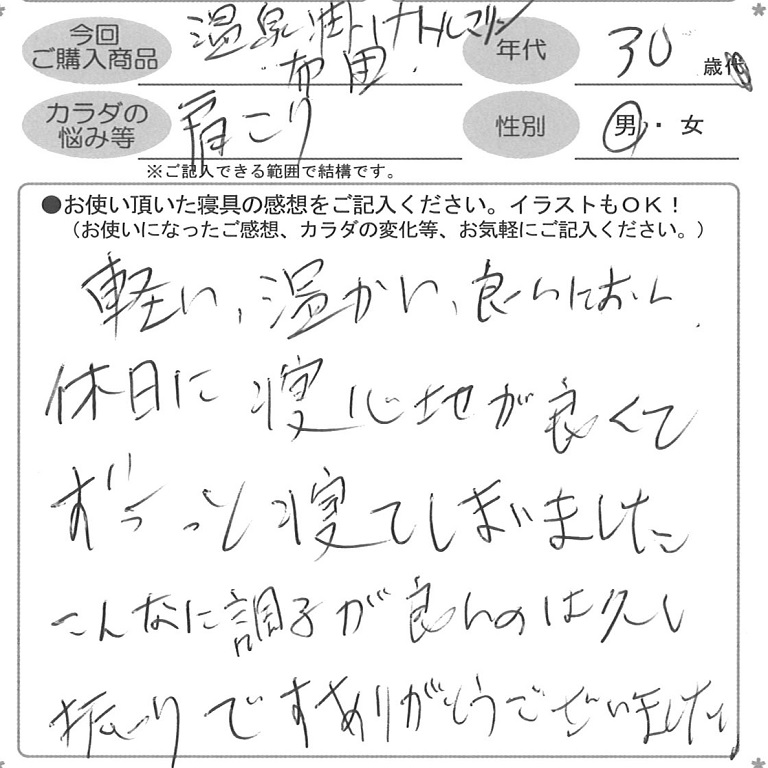 今回
ご購入商品
温泉 トルマリン
布団
年代
30 歳代
カラダの
悩み等
肩こり
性別
男・女
※ご記入できる範囲で結構です。
●お使い頂いた寝具の感想をご記入ください。イラストもOK！
（お使いになったご感想、カラダの変化等、お気軽にご記入ください。）
軽い、温かい、良いにおい、
休日に寝心地が良くて
ずうっと寝てしまいました
こんなに調子が良いのは久し
振りですありがとうございました